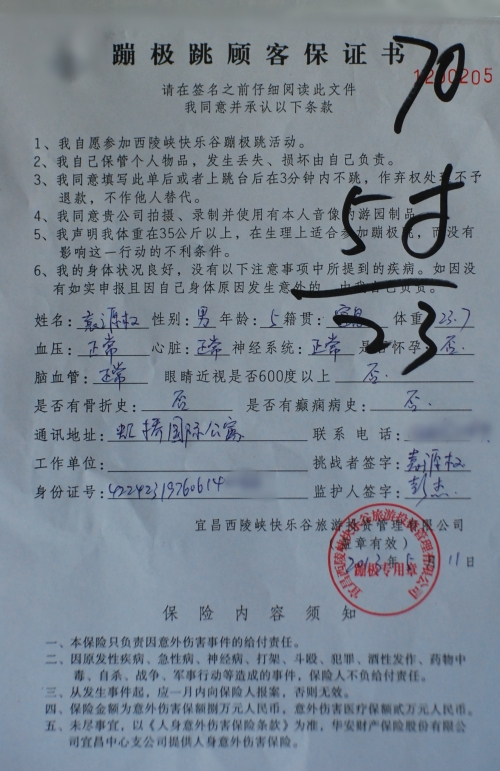 蹦极跳顾客保证书
1200205
70
请在签名之前仔细阅读此文件
我同意并承认以下条款
1、我自愿参加西陵峡快乐谷蹦极跳活动。
2、我自己保管个人物品，发生丢失、损坏由自己负责。
3、我同意填写此单后或者上跳台后在3分钟内不跳，作弃权处理不予
退款，不作他人替代。
4、我同意贵公司拍摄、录制并使用有本人音像的游园制品。
5、我声明我体重在35公斤以上，在生理上适合参加蹦极跳，而没有
影响这一行动的不利条件。
6、我的身体状况良好，没有以下注意事项中所提到的疾病。如因没
有如实申报且因自己身体原因发生意外的，由我自己负责。
23
姓名：袁源权 性别：男 年龄：5 籍贯： 体重：23.7
血压：正常 心脏：正常 神经系统：正常 是否怀孕：否
脑血管：正常 眼睛近视是否600度以上 否
是否有骨折史：否 是否有癫痫病史：否
通讯地址：虹桥国际公寓 联系电话：
工作单位： 挑战者签字：袁源权
身份证号：42242319760614 监护人签字：彭杰
宜昌西陵峡快乐谷旅游投资管理有限公司
（签章有效）
2013年5月11日
宜昌西陵峡快乐谷旅游投资管理有限公司
蹦极专用章
保险内容须知
一、本保险只负责因意外伤害事件的给付责任。
二、因原发性疾病、急性病、神经病、打架、斗殴、犯罪、酒性发作、药物中
毒、自杀、战争、军事行动等造成的事件，保险人不负给付责任。
三、从发生事件起，应一月内向保险人报案，否则无效。
四、保险金额为意外伤害保额捌万元人民币，意外伤害医疗保额贰万元人民币。
五、未尽事宜，以《人身意外伤害保险条款》为准，华安财产保险股份有限公
司宜昌中心支公司提供人身意外伤害保险。